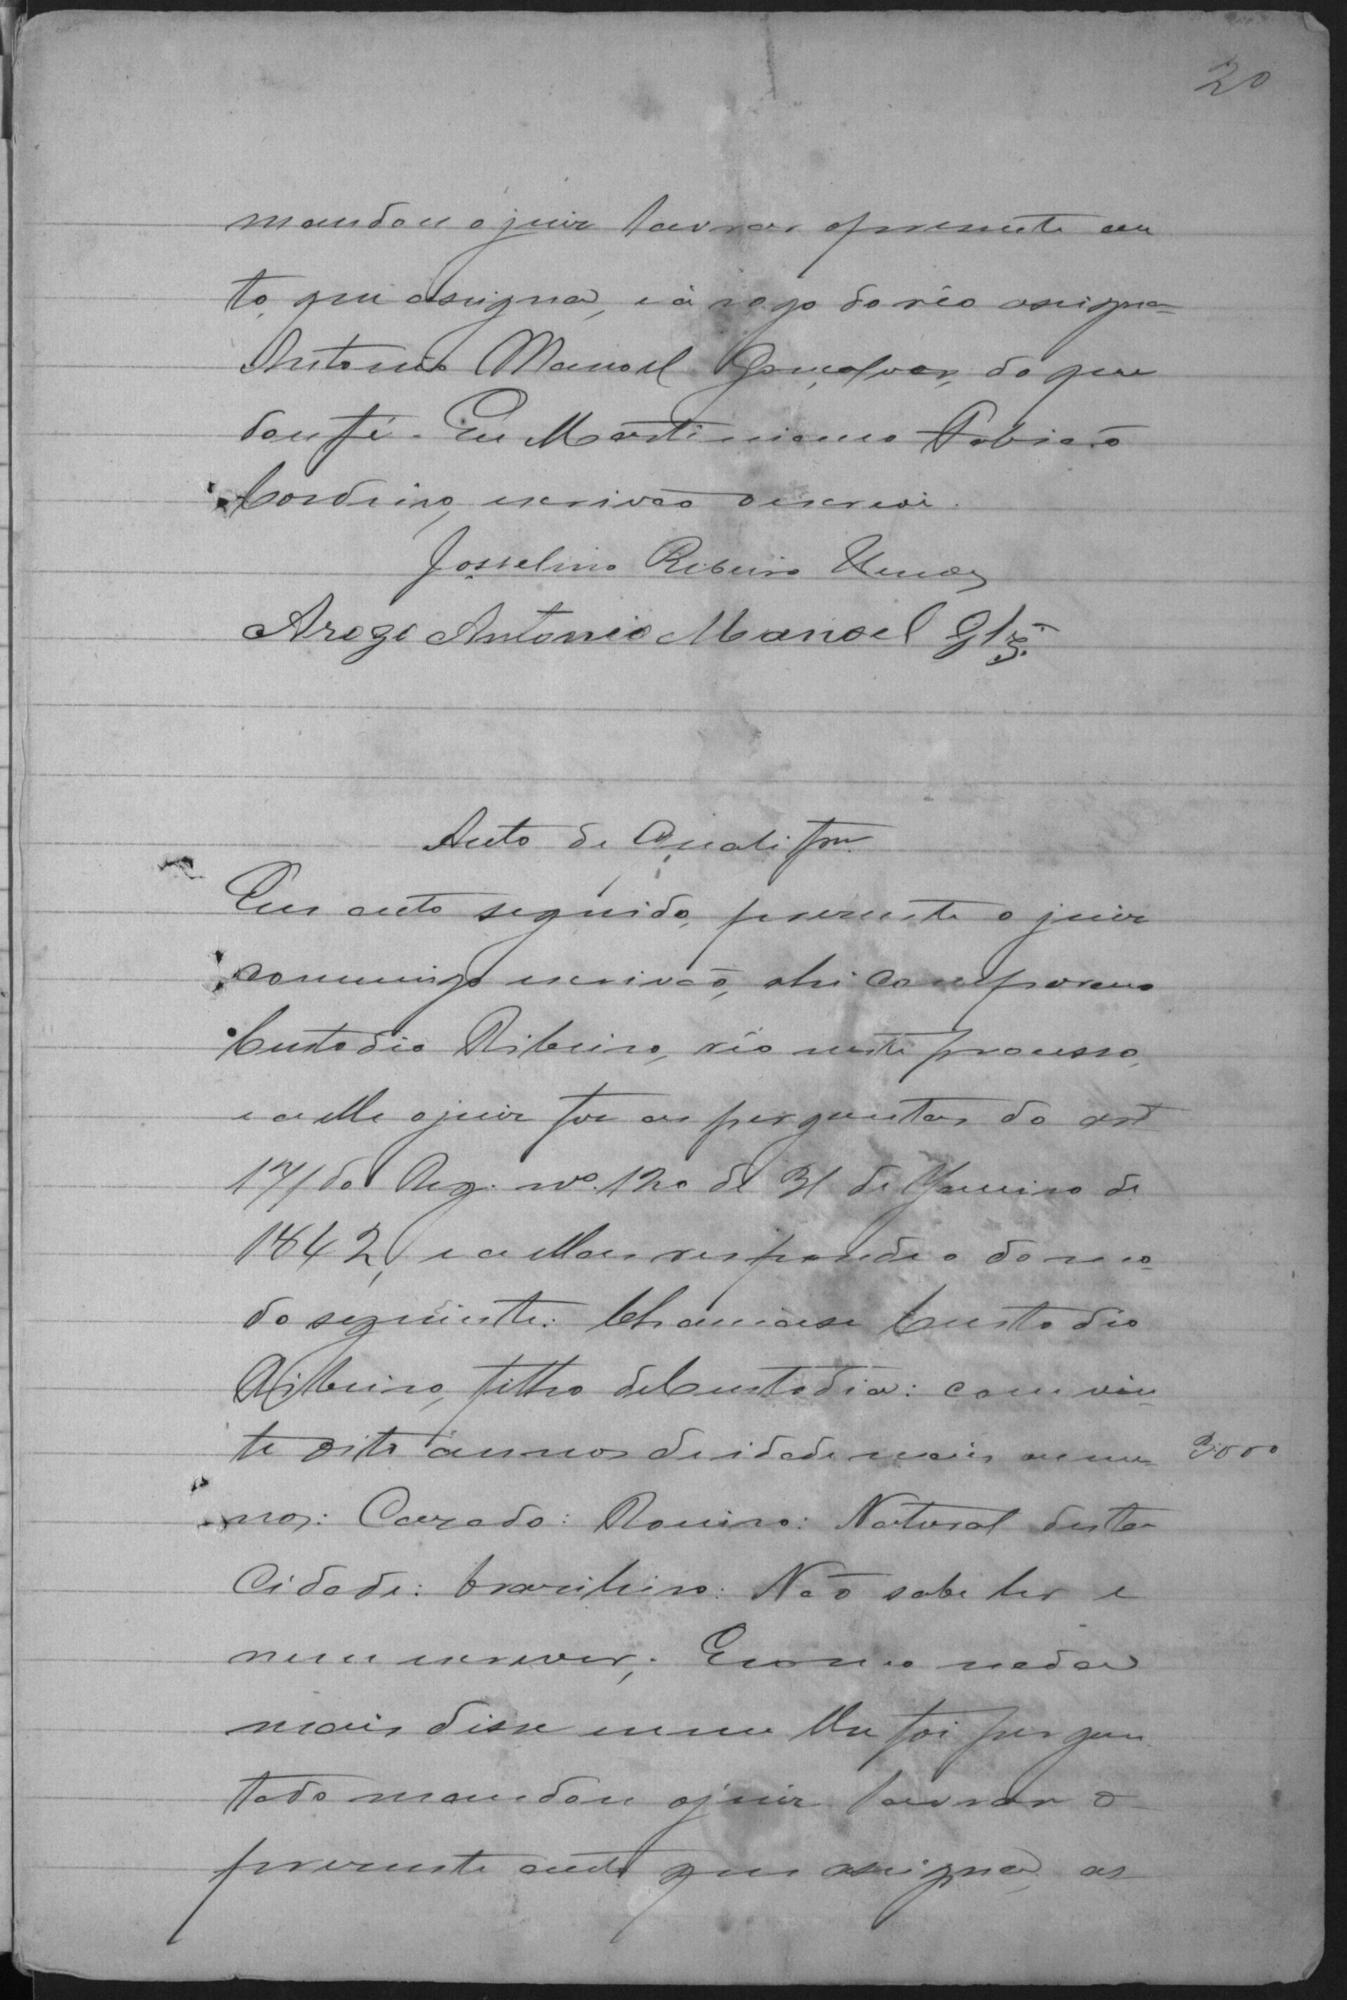 20
mandou o juiz lavrar o presente au
to, que assigna, e à rogo do réo assigna
Antonio Manoel Gonçalves, do que
dou fé. Eu Martiniano Fabiaõ
Cordeiro, escrivaõ o escrevi.
Josselino Ribeiro
Arogo Antonio Manoel Glz.
Auto de Qualifm.
Em acto seguido, presente o juiz
commigo escrivaõ, ahi compareceo
Custodio Ribeiro, réo neste processo,
e a elle o juiz fez as perguntas do art
171 do Reg. nº 120 de 31 de Janeiro de
1842, e a ellas respondeo do mo
do seguinte: Chamarse Custodio
Ribeiro, filho de Custodia: com vin
te oito annos de idade mais ou me
nos: Cazado: Roceiro: Natural desta
Cidade: brazileiro: Não sabe ler e
nem escrever; E como nada
mais disse e nem lhe foi pergun
tado mandou o juiz lavrar o
presente auto que assigna, as
3000